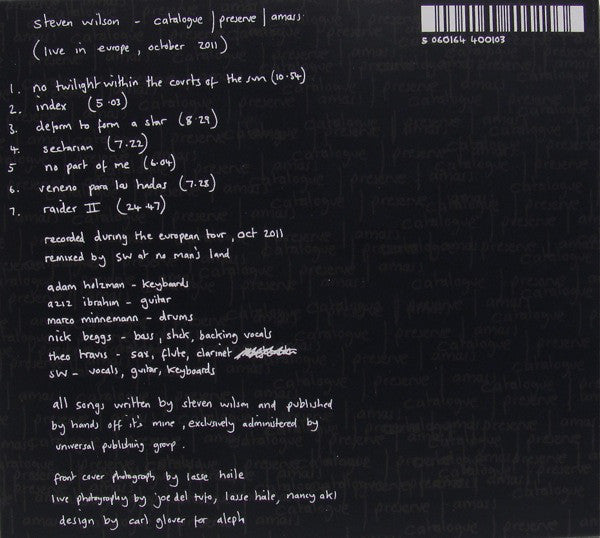 steven wilson - catalogue | preserve | amass
(live in europe, october 2011)
5 060164 400103
1. no twilight within the courts of the sun (10.54)
2. index (5.03)
3. deform to form a star (8.29)
4. sectarian (7.22)
5 no part of me (6.04)
6. veneno para las hadas (7.28)
7. raider II (24.47)
recorded during the european tour, oct 2011
remixed by sw at no man's land
adam holzman - keyboards
aziz ibrahim - guitar
marco minnemann - drums
nick beggs - bass, stick, backing vocals
theo travis - sax, flute, clarinet
sw - vocals, guitar, keyboards
all songs written by steven wilson and published
by hands off it's mine, exclusively administered by
universal publishing group.
front cover photograph by lasse hoile
live photography by joe del tufo, lasse hoile, nancy akl
design by carl glover for aleph